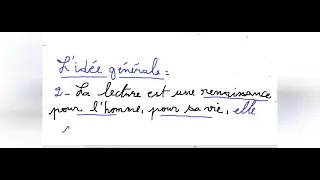 L'idée générale :
2- La lecture est une renaissance
pour l'homme, pour sa vie, elle